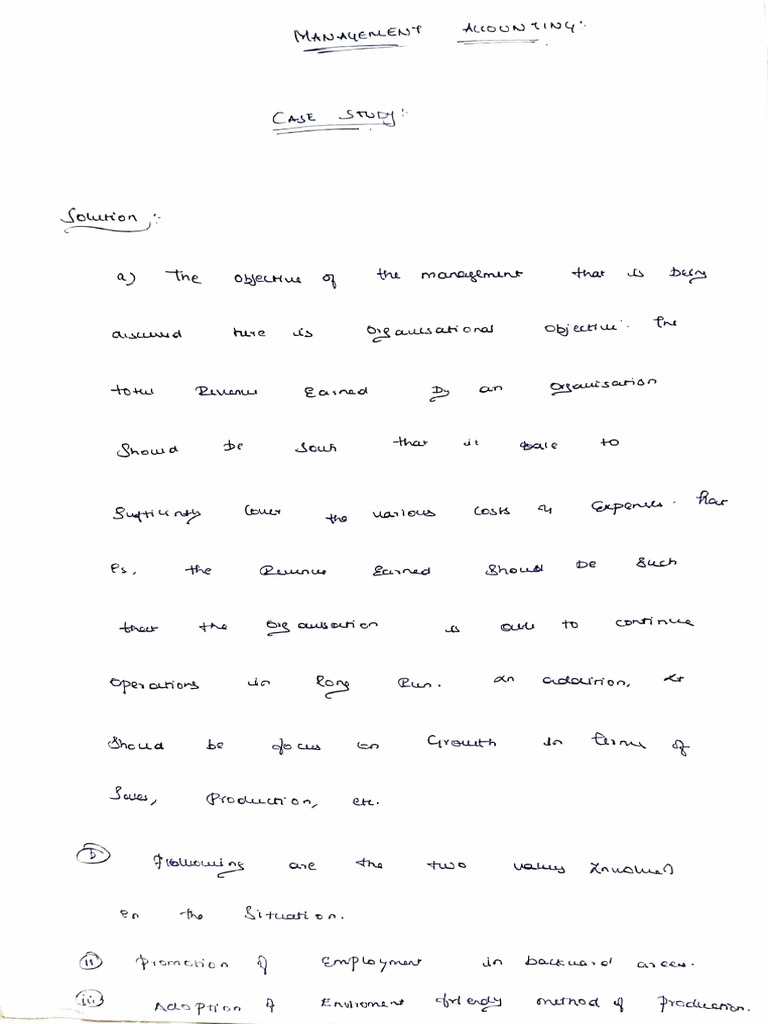 MANAGEMENT ACCOUNTING:
CASE STUDY:
Solution:
a) The objective of the management that is being
discussed here is Organisational objective. The
total Revenue Earned By an Organisation
Should be such that it is able to
Sufficiently cover the various costs & Expenses. That
is, the Revenue Earned Should be Such
that the Organisation is able to continue
Operations in Long Run. In addition, it
Should be focus on Growth in terms of
Sales, Production, etc.
b Following are the two values Involved
in the Situation.
ii Promotion of Employment in backward areas.
iii Adoption of Enviroment friendly method of Production.